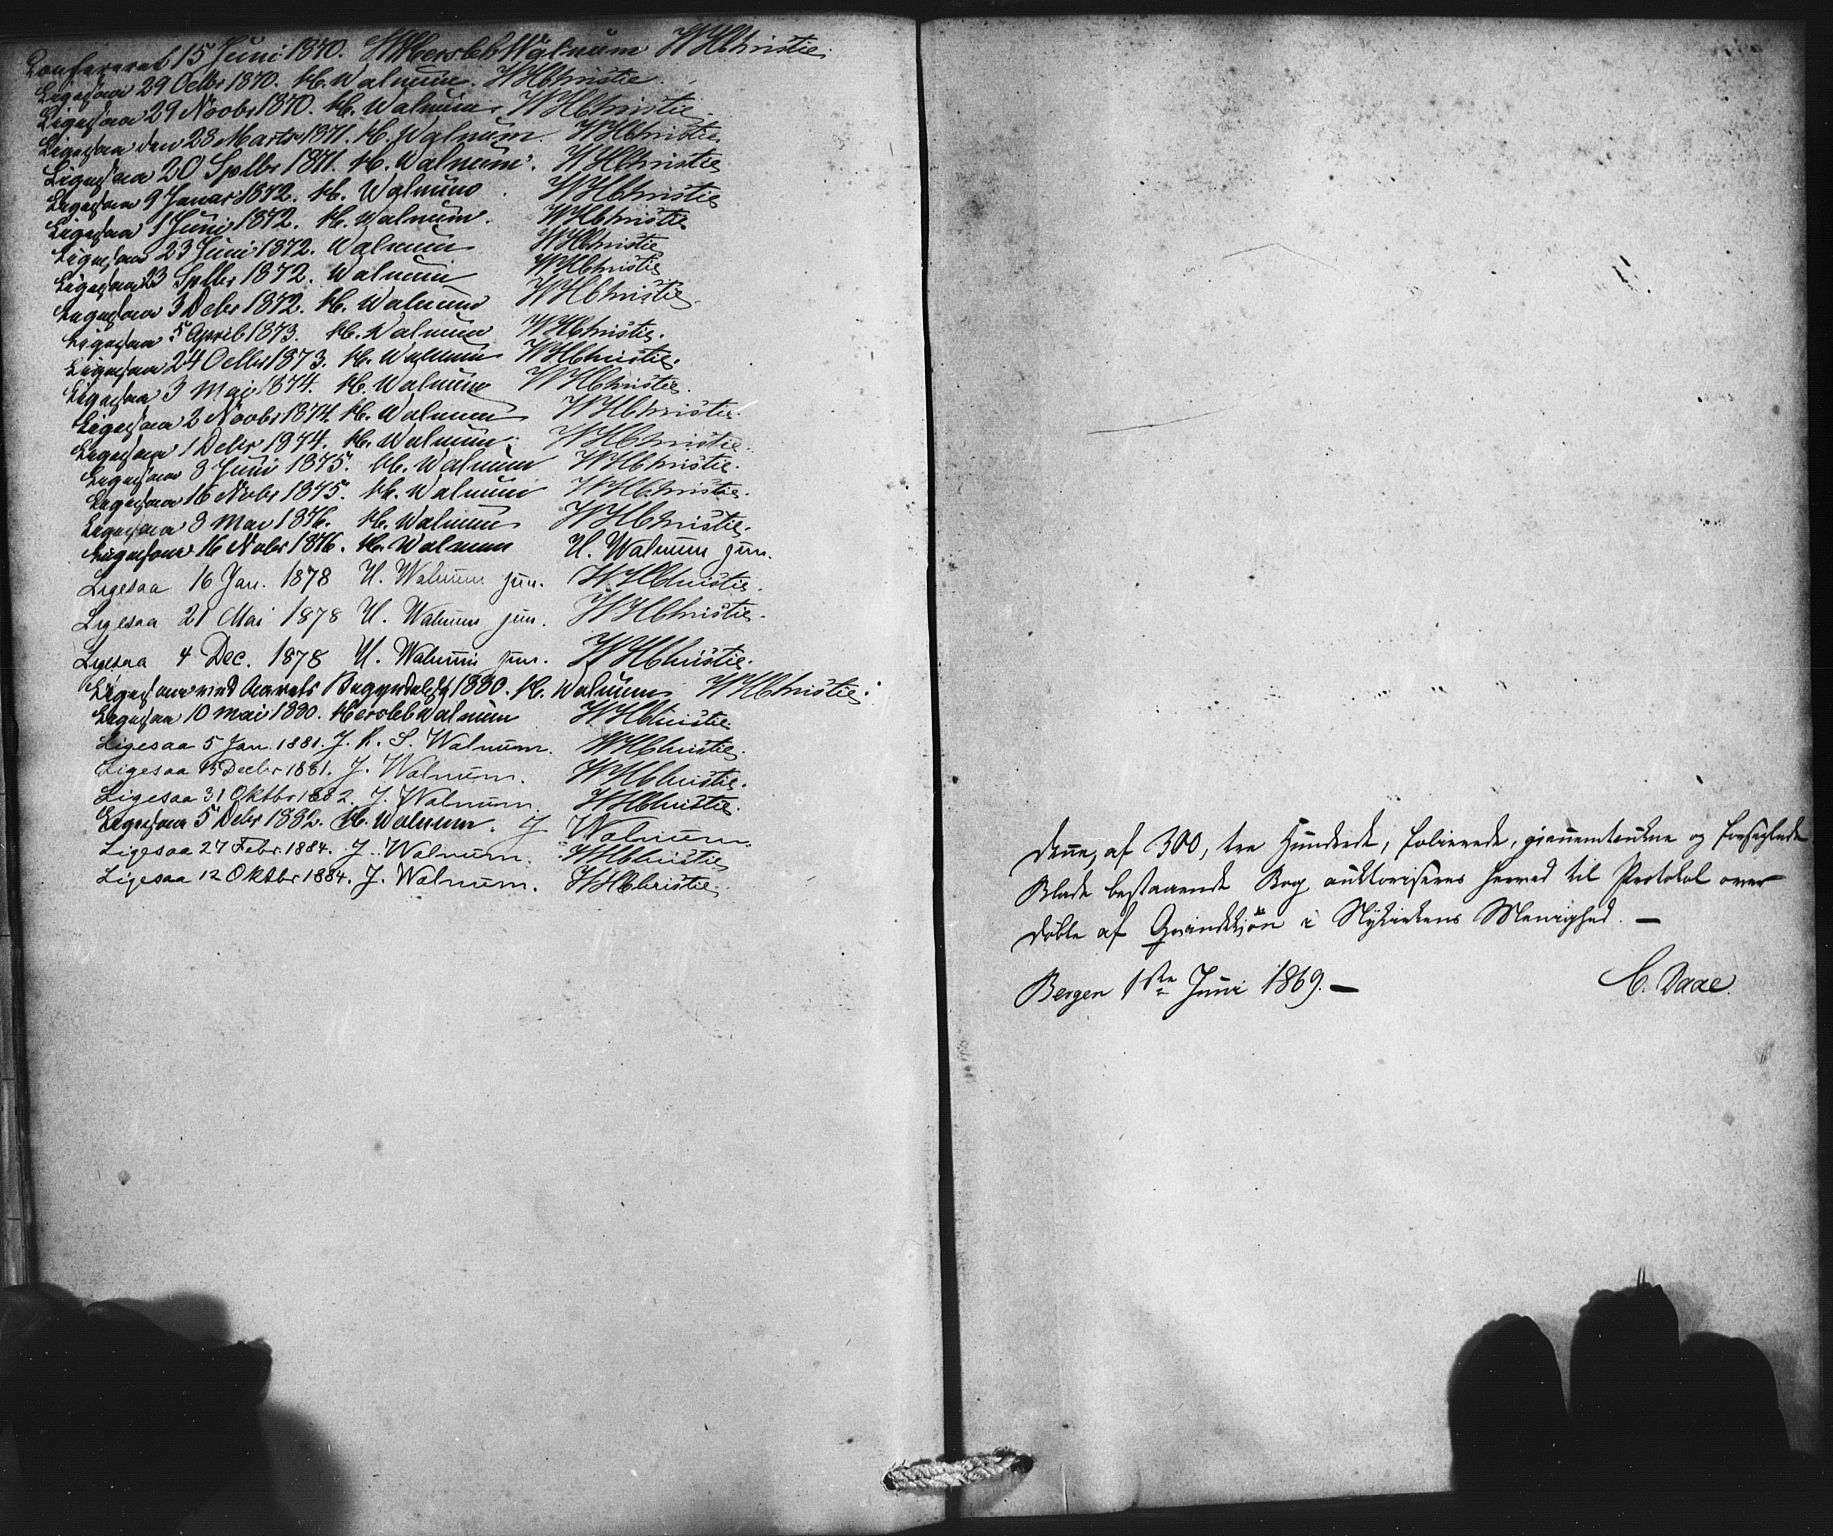 Confereret 15 Juni 1870. H Mersleb Walnum WHChristie.
Ligesaa 29 Octbr 1870. H. Walnum. WHChristie.
Ligesaa 29 Novbr 1870. H. Walnum WHChristie.
Ligesaa den 28 Marts 1871. H. Walnum. WHChristie.
Ligesaa 20 Sptbr 1871. H. Walnum. WHChristie
Ligesaa 9 Januar 1872. H. Walnum. WHChristie
Ligesaa 1 Juni 1872. H. Walnum. WHChristie.
Ligesaa 23 Juni 1872. Walnum WHChristie
Ligesaa 23 Sptbr 1872. Walnum WHChristie
Ligesaa 3 Debr 1872. H. Walnum WHChristie.
Ligesaa 5 April 1873. H. Walnum WHChristie.
Ligesaa 24 Octbr 1873. H. Walnum WHChristie.
Ligesaa 3 Mai 1874. H. Walnum WHChristie.
Ligesaa 2 Novbr 1874. H. Walnum WHChristie.
Ligesaa 1 Debr 1874. H. Walnum. WHChristie.
Ligesaa 8 Juni 1875. H. Walnum WHChristie.
Ligesaa 16 Nvbr 1875. H. Walnum WHChristie.
Ligesaa 8 Mai 1876. H. Walnum WHChristie.
Ligesaa 16 Nvbr 1876. H. Walnum U. Walnum jun.
Ligesaa 16 Jan. 1878 U. Walnum jun. WHChristie.
Ligesaa 21 Mai 1878 U. Walnum jun. WHChristie.
Ligesaa 4 Dec. 1878 U. Walnum jun. WHChristie.
Ligesaa ved Aarets Begyndelse 1880. H. Walnum WHChristie.
Ligesaa 10 Mai 1880. Hersleb Walnum WHChristie.
Ligesaa 5 Jan. 1881. J. K. S. Walnum. WHChristie.
Ligesaa 15 Decbr 1881. J. Walnum. WHChristie.
Ligesaa 31 Oktbr 1882. J. Walnum. WHChristie.
Ligesaa 5 Debr 1882. H. Walnum. J Walnum.
Ligesaa 27 Febr. 1884. J. Walnum. WHChristie
Ligesaa 12 Oktbr 1884. J. Walnum. WHChristie.
Denne, af 300, tre Hundrede, folierede, gjennemtrukne og forseglede
Blade bestaaende Bog auktoriseres herved til Protokol over
Døbte af Qvindekjøn i Nykirkens Menighed. —
Bergen 1ste Juni 1869. —
C. Daae.